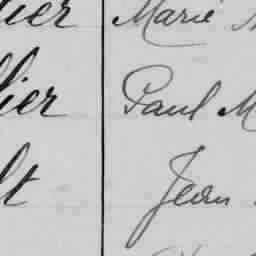 ier Marie
lier Paul M
lt Jean